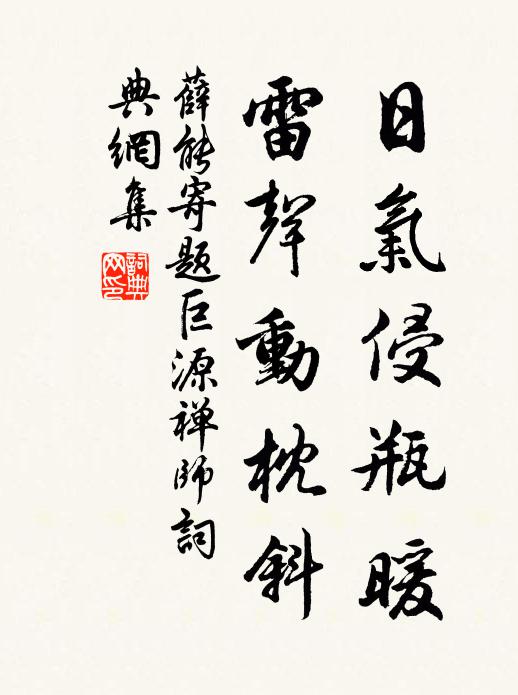 日氣侵瓶暖
雷聲動枕斜
薛能寄題巨源禅師詞
典網集
詞典网印